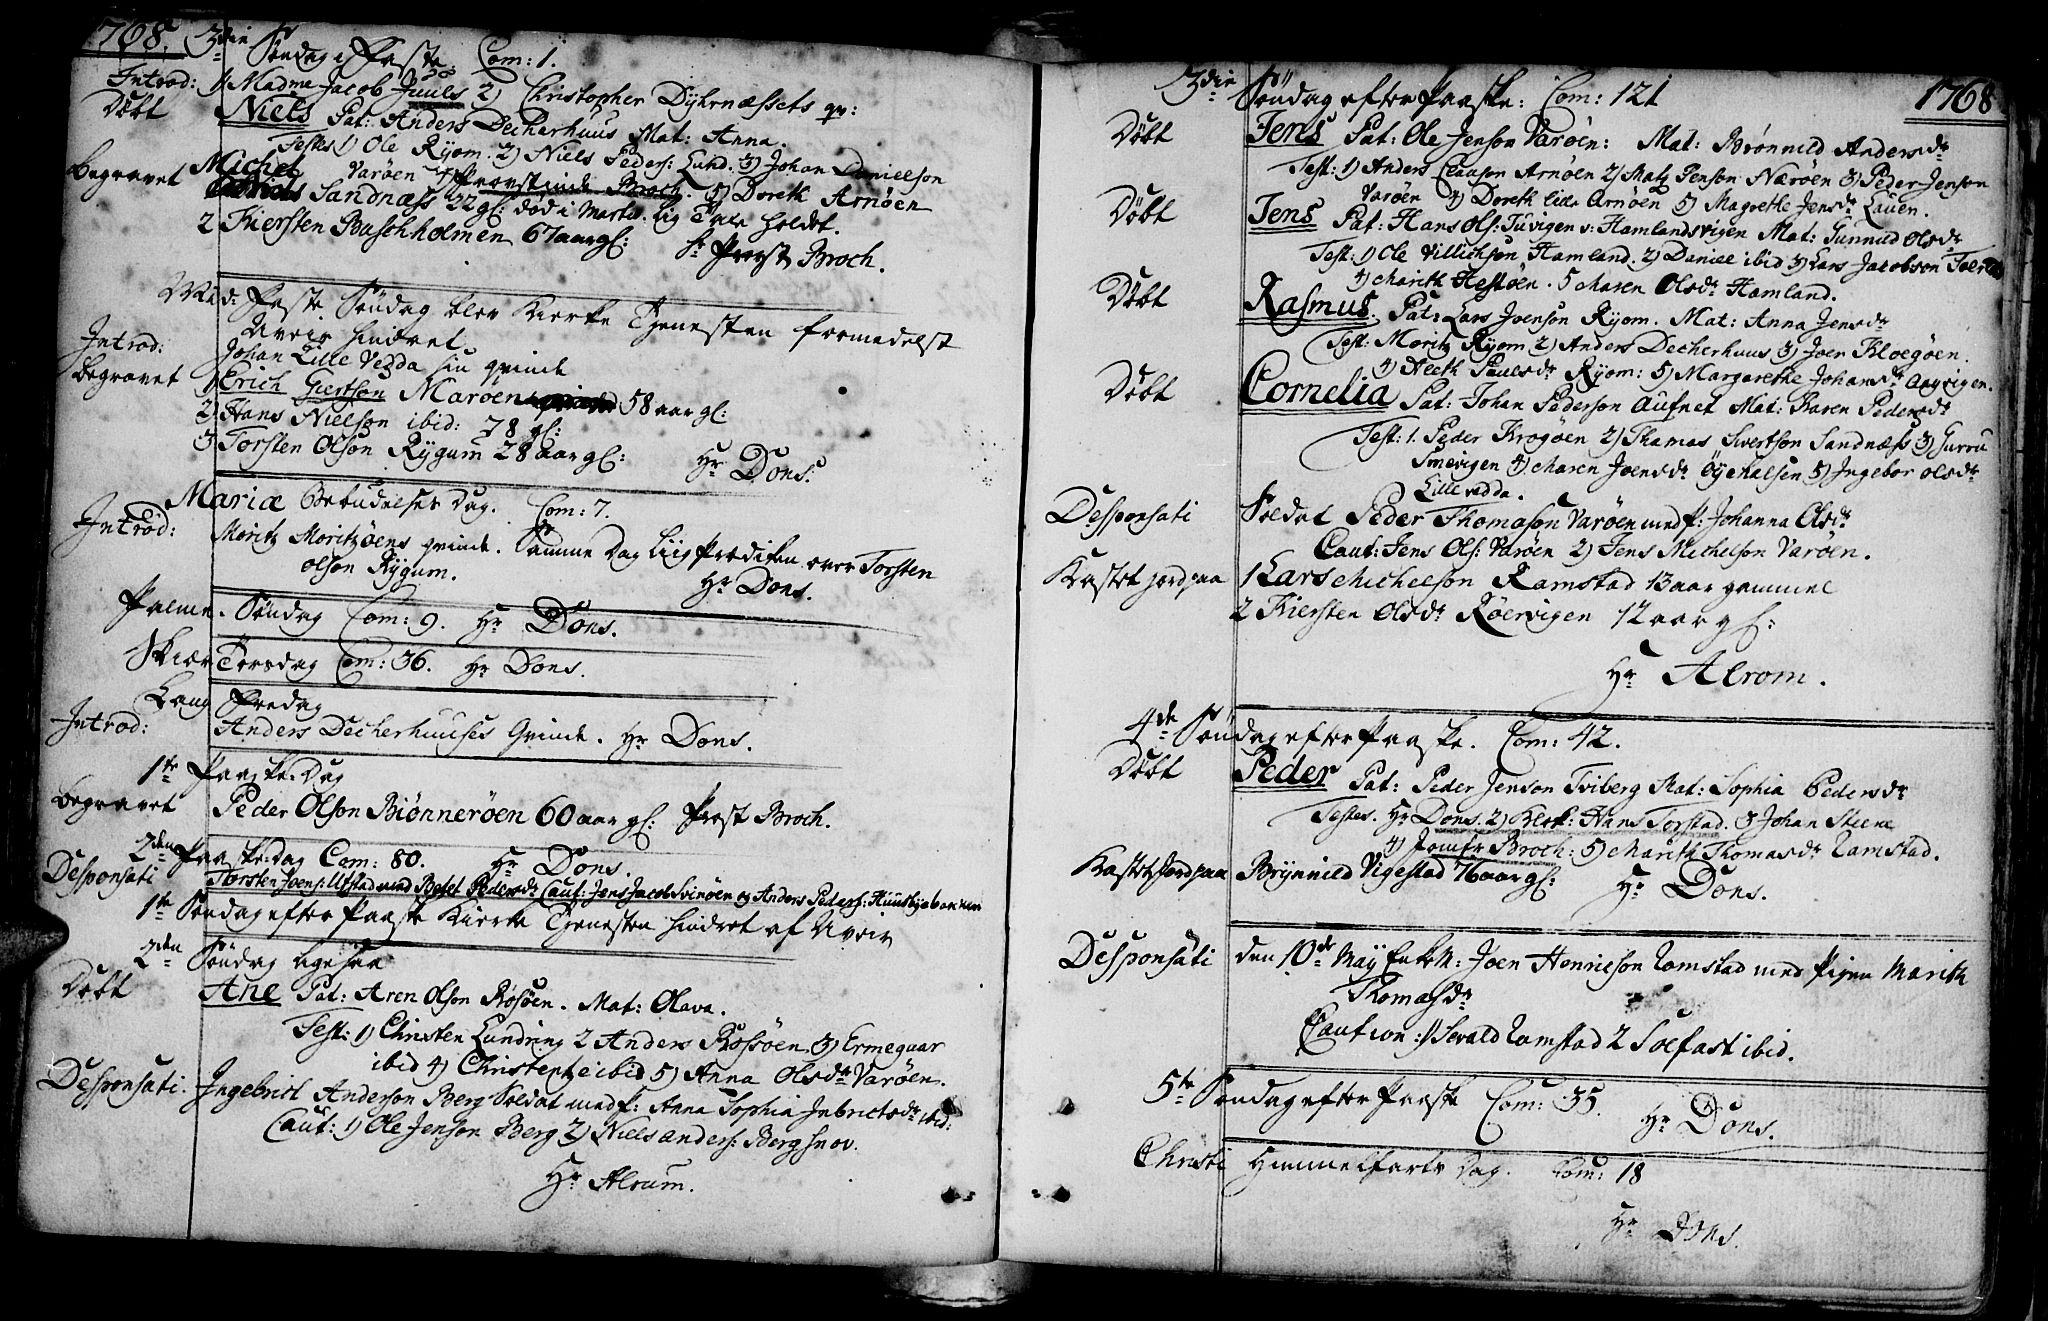 1768. 3die Søndag i Faste. Com: 1.
Introd: 1) Madme Jacob Juuls 2) Christopher Dyhrnæssets qv:
Døbt Niels Pat: Anders Decherhuus Mat: Anna.
Testes 1) Ole Ryom. 2) Niels Peders: Lund. 3) Johan Danielson
Varøen 4) Provstinde Broch. 5) Doreth Arnøen
Begravet Michel Sandnæss 22 gl: død i Martz. Lig Tale holdet.
2 Kiersten Baschholmen 67 aar gl: hr Provst Broch.
Mid-Faste Søndag blev Kierke Tjenesten formedelst
Uveir hindret
Introd: Johan Lille Vedda sin qvinde
Begravet 1) Erich Giertson Marøen 58 aar gl:
2) Hans Nielson ibid: 78 gl:
3 Torsten Olson Rygum 28 aar gl: Hr Dons.
Mariæ Bebudelses Dag. Com: 7.
Introd: Moritz Moritzøens qvinde. Samme Dag Liig Prædiken over Torsten
olson Rygum. Hr Dons.
Palme-Søndag Com: 9. Hr Dons.
Skier Torsdag Com: 36. Hr Dons.
Lang Fredag
Introd: Anders Decherhuuses Qvinde. Hr Dons.
1te Paaske-Dag
Begravet Peder Olson Biønnerøen 60 aar gl: Prost Broch.
2den Paaske-dag Com: 80. Hr Dons.
Desponsati Torsten Joens: Utstad med Beret Pedersdr Caut: Jens Jacobs Svinøen og Anders Peders:
1te Søndag efter Paaske Kierke Tjenesten hindret af Uveir
2den Søndag ligesaa
Døbt Ane Pat: Aren Olson Røsøen. Mat: Olava.
Test: 1) Christen Lundring 2 Anders Røssøen 3) Ermeguar
ibid 4) Christentze ibid 5) Anna Olsdr Varøen.
Desponsati. Ingebrict Anderson Berg Soldat med p: Anna Sophia Inbrictsdr ibid:
Caut: 1) Ole Jenson Berg 2) Niels Anders: Bergsnov.
Hr Alrum.
3die Søndag efter Paaske: Com: 121 1768
Døbt Jens Pat: Ole Jenson Varøen: Mat: Brønnild Andersdr
Test: 1) Anders Claason Arnøen 2) Matz Jenson Nærøen 3) Peder Jenson
Varøen 4) Doreth lide Arnøen 5) Magrethe Jensdr Lauen.
Døbt Jens Pat: Hans Ols: Tuvigen v: Hamlandsvigen Mat: Gunnild Olsdr
Test: 1) Ole Villichson Hamland. 2) Daniel ibid 3) Lars Jacobson
4) Marith Hestøen. 5 Maren Olsdr Hamland.
Døbt Rasmus. Pat: Lars Joenson Ryom. Mat: Anna Jensdr
Test: Moritz Ryom 2) Anders Decherhuus 3) Joen Kloegøen.
4) Aleth Paulsdr Ryom: 5) Margarethe Johansdr
Døbt Cornelia Pat: Johan Pederson Aufnet Mat: Karen Pedersdr
Test: 1. Peder Krogøen 2) Thomas Sivertson Sandnæss 3) Gurru
Smevigen 4) Maren Joensdr Øyehalsen 5) Ingebor Olsdr
Lille vedda.
Desponsati Soldat Peder Thomason Varøen med p: Johanna Olsdr
Caut: Jens Ols: Varøen 2) Jens Michelson Varøen.
Kastet jord paa 1 Lars Michelson Ramstad 13 aar gammel
2 Kiersten Olsdr Røervigen 12 aar gl:
Hr Alrom.
4de Søndag efter Paaske. Com: 42.
Døbt Peder Pat: Peder Jenson Tviberg Mat: Sophia Pedersdr
Testes. Hr Dons. 2) Klok: Hans Torstad. 3 Johan Steene
4) Jomfr Broch: 5) Marith Thomasdr Ramstad.
Kastet Jord paa Brynnild Vigestad 76 aar gl: Hr Dons.
Desponsati den 10de May Enkem: Joen Henricson Ramstad med Pigen Marith
Thomasdr
Caution: 1) Sevald Ramstad 2 Solfast ibid.
5te Søndag efter Paaske Com: 35. Hr Dons.
Christi Himmelfarts Dag. Com: 18
Hr Dons.